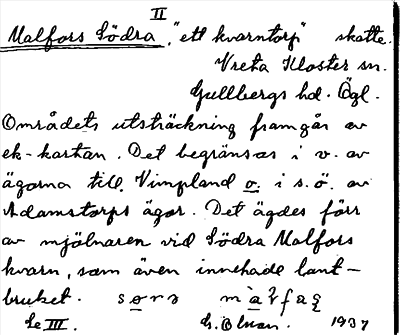 II
Malfors Södra, "ett kvarntorp" skatte.
Vreta Kloster sn.
Gullbergs hd. Ögl.
Området utsträckning framgår av
ek-kartan. Det begränsas i v. av
ägorna till Vimpland o. i s.ö. av
Adamstorps ägor. Det ägdes förr
av mjölnaren vid Södra Malfors
kvarn, som även innehade lant-
bruket.
Le III. 1937